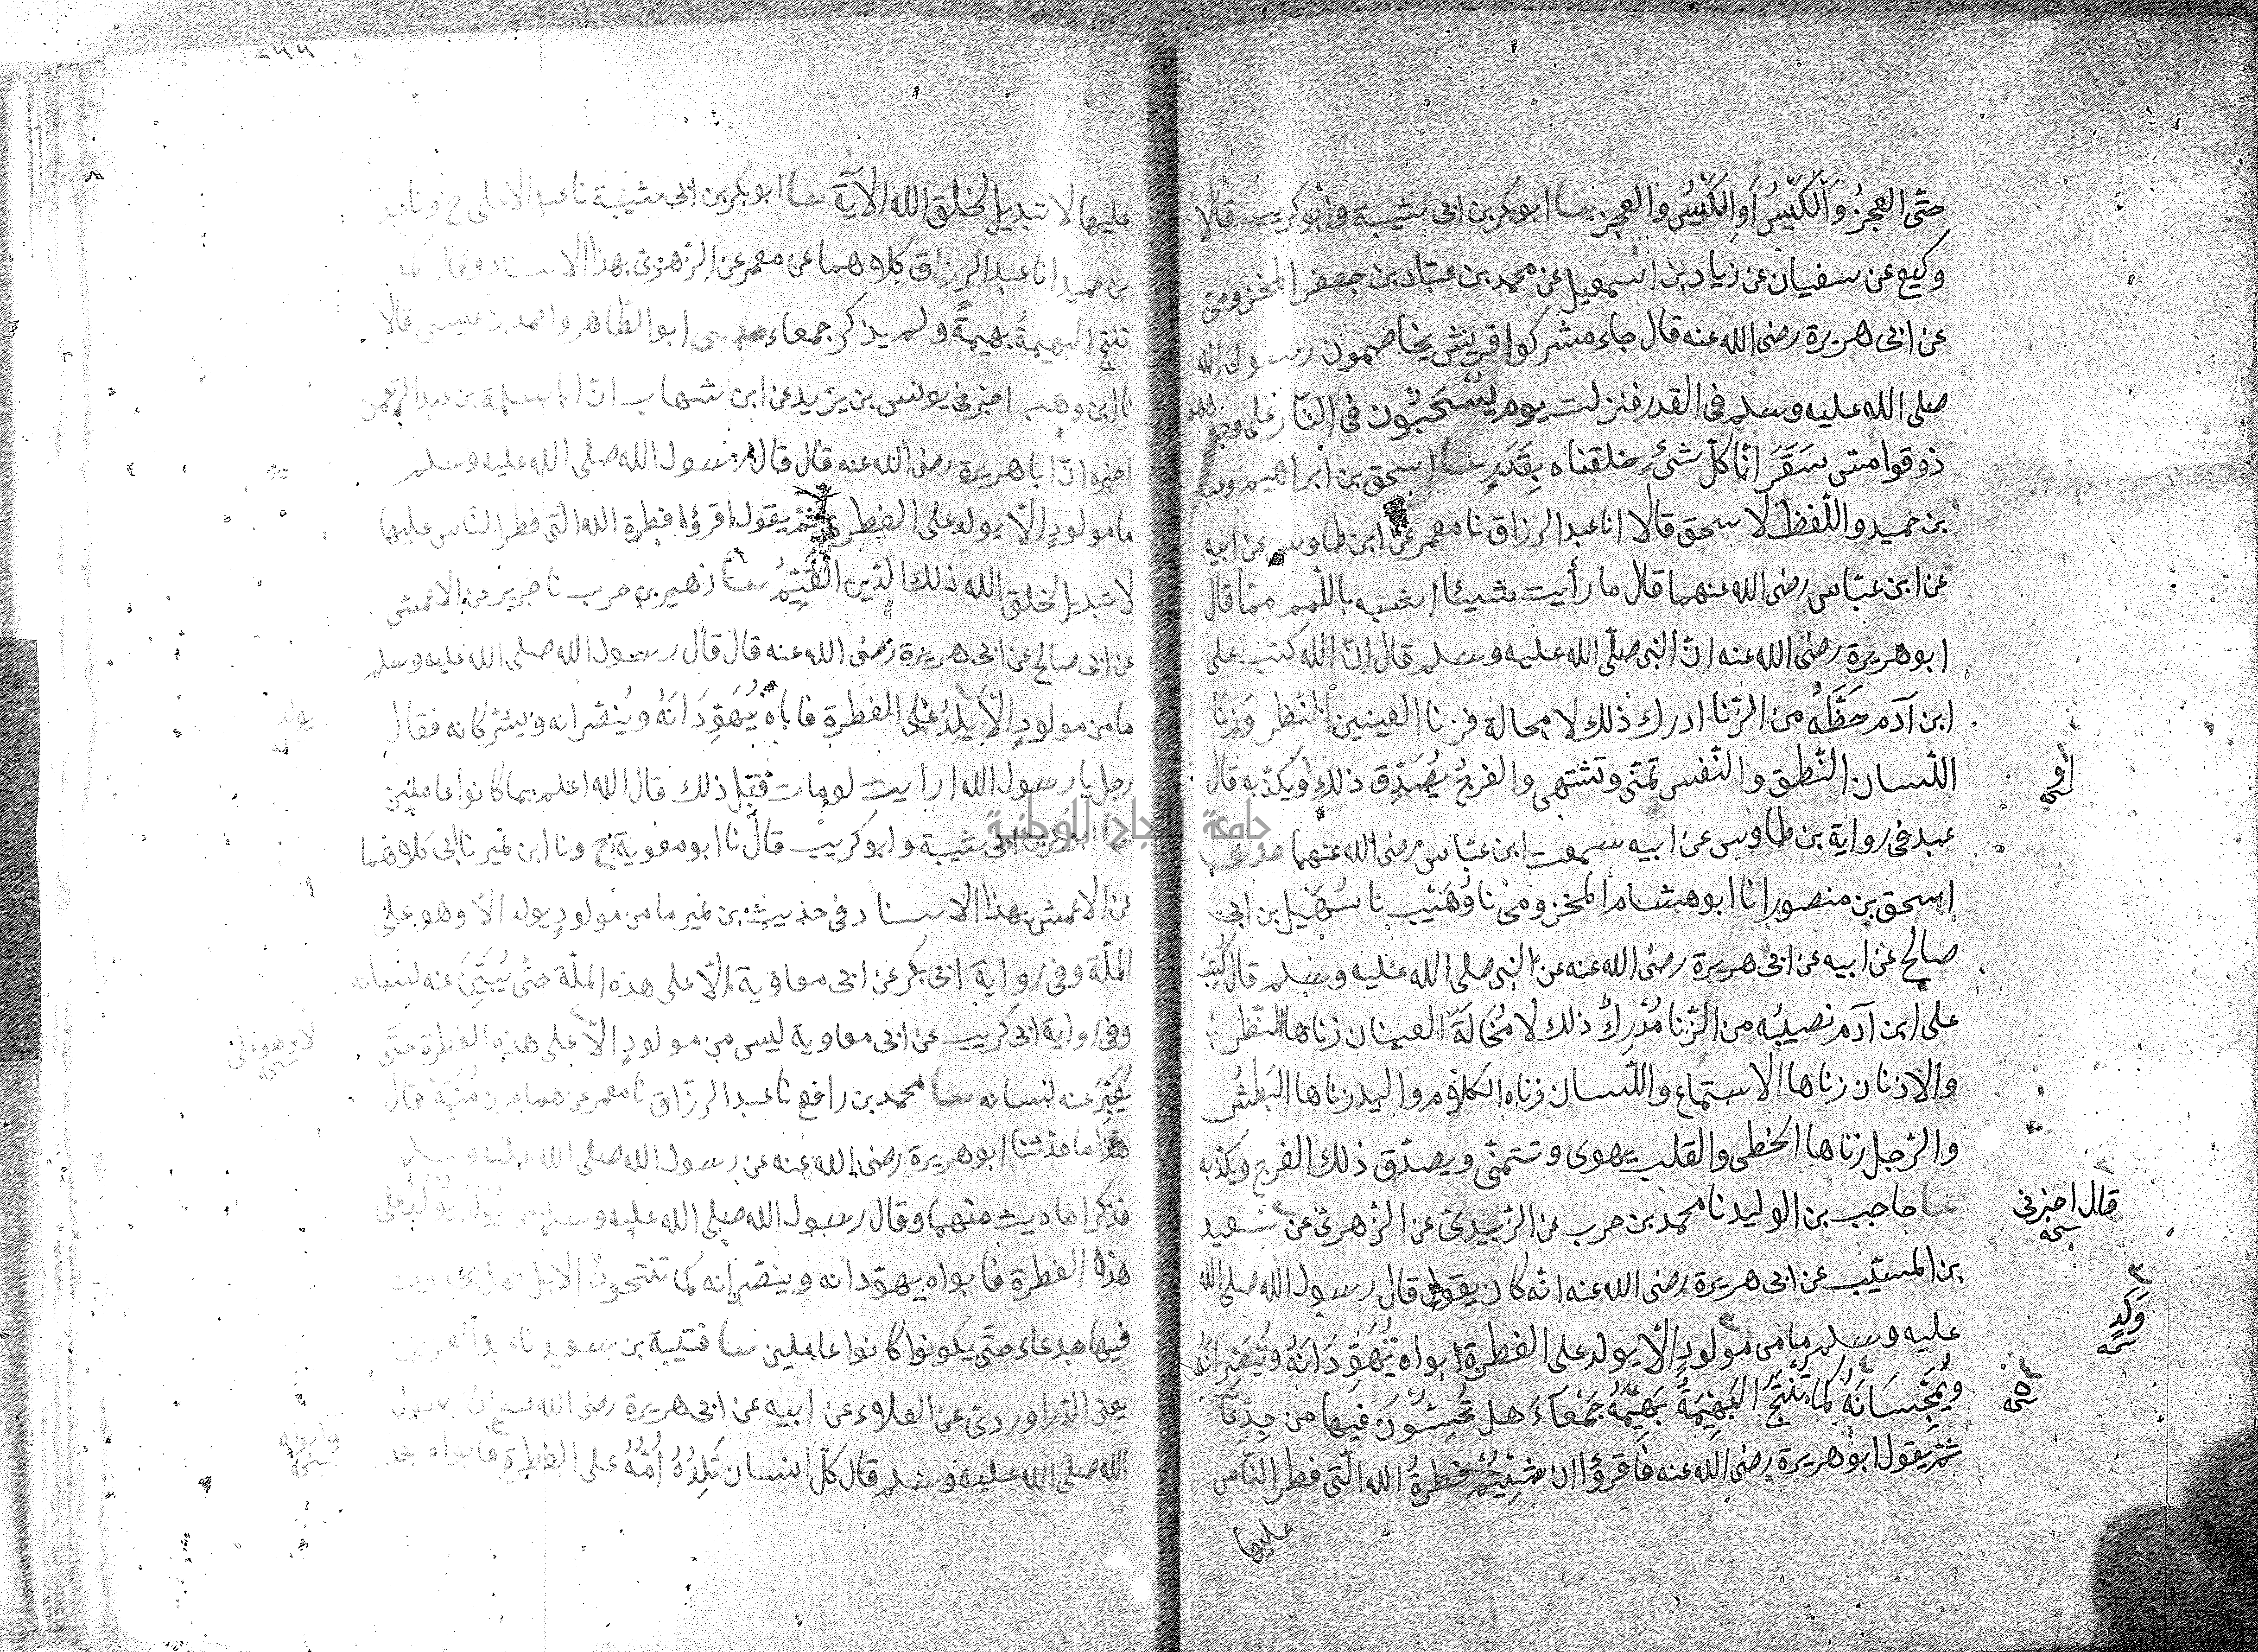 حتى العجزُ وَالكَيِّسُ أَوِ الكَيِّسُ والعجز حدثنا ابو بكر بن ابى شيبة وابو كريب قالا
وكيع عن سفيان عن زياد بن اسمعيل عن محمد بن عبّاد بن جعفر المخزومىّ
عن ابى هريرة رضى الله عنه قال جاء مشركوا قريش يخاصمون رسول الله
صلى الله عليه وسلم فى القدر فنزلت يوم يُسْحَبُون فى النّار على وجوههم
ذوقوا مسّ سَقَرَ انّا كلّ شئٍ خلقناه بِقَدَرٍ حدثنا اسحق بن ابراهيم وعبد
بن حميد واللّفظ لاسحق قالا انا عبد الرزاق نا معمر عن ابن طاوس عن ابيه
عن ابن عبّاس رضى الله عنهما قال ما رأيت شيئا اشبه باللّمم ممّا قال
ابو هريرة رضى الله عنه انّ النبى صلّى الله عليه وسلم قال انّ الله كتب على
ابن آدم حَظَّهُ من الزّنا ادرك ذلك لا محالة فزنا العينين النّظر وَزِنَا
اللّسان النّطق والنّفس تمنّى وتشتهى والفرجُ يُصَدِّق ذلك او يكذّبه قال
او
عبد فى رواية بن طاوس عن ابيه سمعت ابن عبّاس رضى الله عنهما حدثنى
اسحق بن منصور انا ابو هشام المخزومى نا وُهَيْب نا سُهَيْل بن ابى
صالح عن ابيه عن ابى هريرة رضى الله عنه عن النبى صلى الله عليه وسلم قال كُتِبَ
على ابن آدم نصيبُه من الزّنا مُدْرِكٌ ذلك لا مُحَالَةَ العينان زناها النّظر
والاذنان زناها الاستماع واللّسان زناه الكلام واليد زناها البَطْشُ
والرّجل زناها الخطى والقلب يهوى وتتمنّى ويصدّق ذلك الفرج ويكذبه
حدثنا حاجب بن الوليد نا محمد بن حرب عن الزّبيدىّ عن الزّهرىّ عن سعيد
قال اخبرنى
بن المسيّب عن ابى هريرة رضى الله عنه انّه كان يقول قال رسول الله صلى الله
عليه وسلم ما من مولودٍ الّا يولد على الفطرة ابواه يُهَوِّدَانَهُ وَيُنَصِّرَانَهُ
ويُمَجِّسَانَهُ كما تُنْتَجُ البَهِيْمَةُ بَهِيْمَةً جَمْعَآءَ هل تُحِسُّوْنَ فيها من جدعآ
ثمّ يقول ابو هريرة رضى الله عنه فاقرؤا ان شِئْتُمْ فطرةَ الله الّتى فطر النّاس
عليها
عليها لا تبديل لخلق الله الآية حدثنا ابو بكر بن ابى شيبة نا عبد الاعلى ح ونا عبد
بن حميد انا عبد الرزاق كلاهما عن معمر عن الزهرىّ بهذا الاسناد وقال كما
تنتج البهيمةُ بهيمةً ولم يذكر جمعاء حدثنى ابو الطّاهر واحمد بن عيسى قالا
نا ابن وهب اخبرنى يونس بن يزيد عن ابن شهاب انّ ابا سلمة بن عبد الرّحمن
اخبره انّ ابا هريرة رضى الله عنه قال قال رسول الله صلى الله عليه وسلم
ما مولودٍ الّا يولد على الفطرة ثمّ يقول اقرؤا فطرة الله الّتى فطر النّاس عليها
لا تبديل لخلق الله ذلك الدّين القَيِّمُ حدثنا زهير بن حرب نا جرير عن الاعمش
عن ابى صالح عن ابى هريرة رضى الله عنه قال قال رسول الله صلى الله عليه وسلم
ما من مولودٍ الّا يَلِدُ على الفطرة فاباه يُهَوِّدَانَهُ ويُنصّرانه ويشرّكانه فقال
يولد
رجل يا رسول الله ارايت لو مات قبل ذلك قال الله اعلم بما كانوا عاملين
حدثنا ابو بكر بن ابى شيبة وابو كريب قالا نا ابو معوية ح ونا ابن نمير نا ابى كلاهما
عن الاعمش بهذا الاسناد فى حديث بن نمير ما من مولودٍ يولد الّا وهو على
الملّة وفى رواية ابى بكر عن ابى معاوية الّا على هذه الملّة حتّى يُبَيِّنَ عنه لسانه
وفى رواية ابى كريب عن ابى معاوية ليس من مولودٍ الّا على هذه الفطرة حتّى
الا وهو على
يُعَبِّرَ عنه لسانه حدثنا محمد بن رافع نا عبد الرزّاق نا معمر عن همام بن مُنَبِّه قال
هذا ما حدّثنا ابو هريرة رضى الله عنه عن رسول الله صلى الله عليه وسلم
فذكر احاديث منها وقال رسول الله صلى الله عليه وسلم من يُولَدُ يُولَدُ على
هذه الفطرة فابواه يهوّدانه وينصّرانه كما تنتجون الابل هل تجدون
فيها جدعاء حتّى يكونوا كانوا عاملين حدثنا قتيبة بن سعيد نا عبد العزيز
يعنى الدّراوردىّ عن العلاء عن ابيه عن ابى هريرة رضى الله عنه انّ رسول
الله صلى الله عليه وسلم قال كلّ انسان تَلِدُهُ اُمُّهُ على الفطرة فابواه بعد
وابواه
جامعة النجاح الوطنية